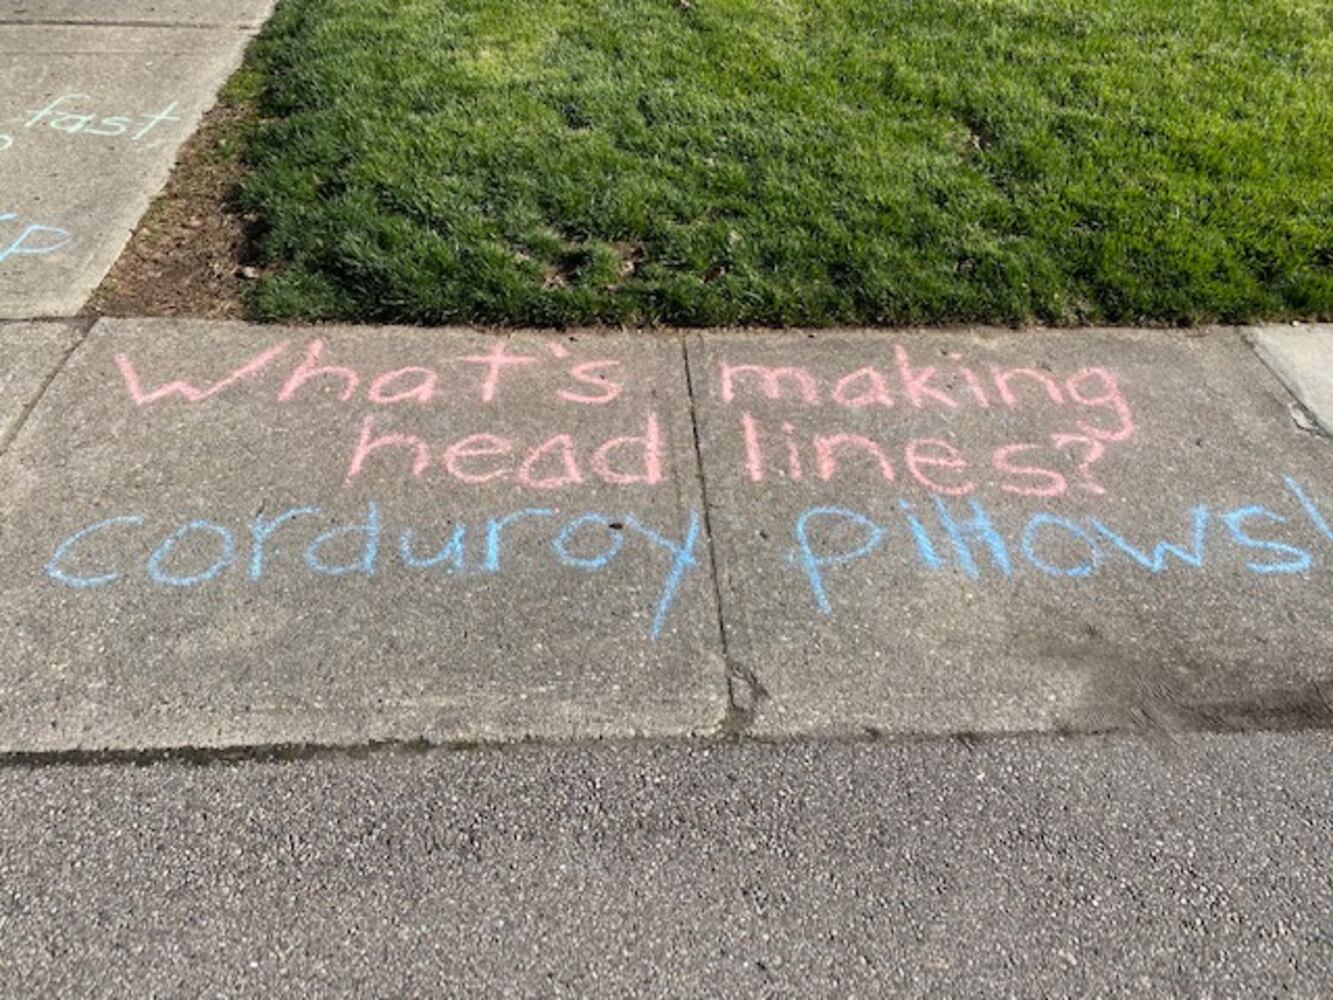 fast,
What's making
head lines?
corduroy pillows!